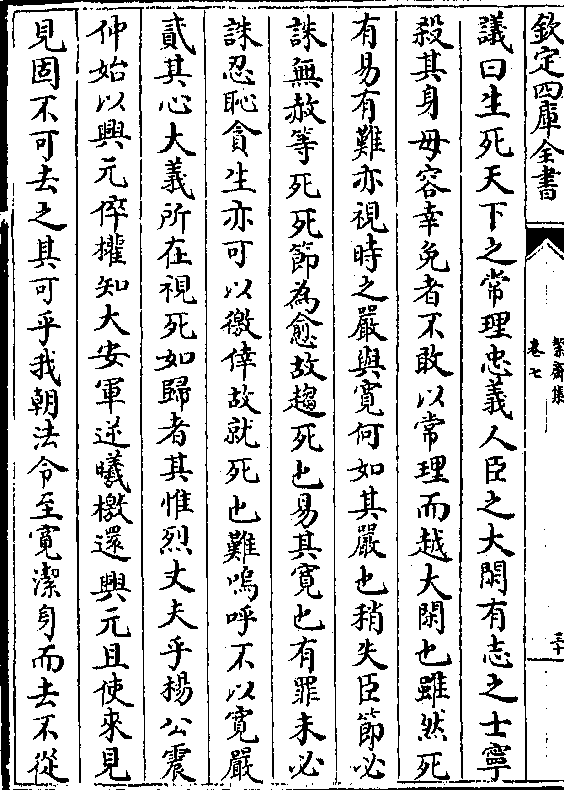 欽定四庫全書
絜齋集
卷七
三十
議曰生死天下之常理忠義人臣之大閑有志之士寧
殺其身毋容幸免者不敢以常理而越大閑也雖然死
有易有難亦視時之嚴與寛何如其嚴也稍失臣節必
誅無赦等死死節為愈故趨死也易其寛也有罪未必
誅忍恥貪生亦可以徼倖故就死也難嗚呼不以寛嚴
貳其心大義所在視死如歸者其惟烈丈夫乎楊公震
仲始以興元倅權知大安軍逆曦檄還興元且使來見
見固不可去之其可乎我朝法令至寛潔身而去不從